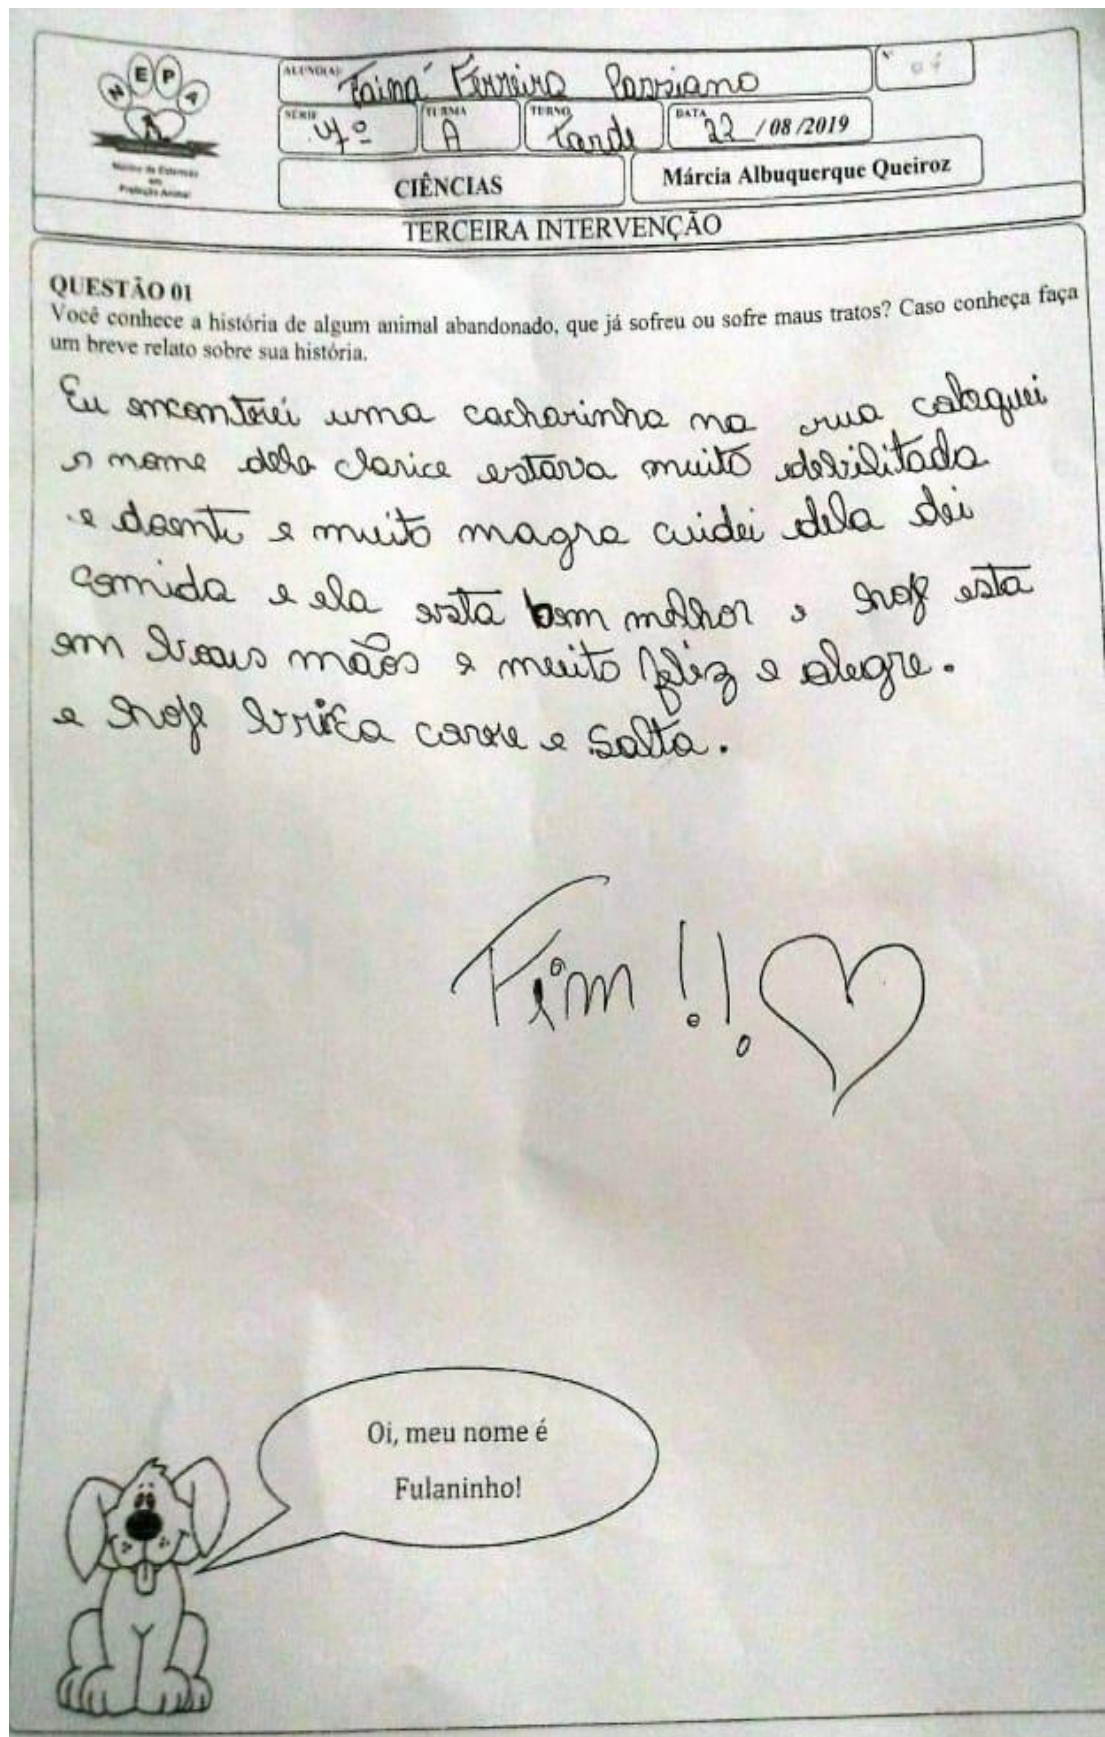 NEPA
Núcleo de Extensão
em
Proteção Animal
ALUNO(A): Tainá Ferreira
SÉRIE 4º TURMA A TURNO Tarde DATA 22 / 08 /2019
CIÊNCIAS Márcia Albuquerque Queiroz
TERCEIRA INTERVENÇÃO
QUESTÃO 01
Você conhece a história de algum animal abandonado, que já sofreu ou sofre maus tratos? Caso conheça faça
um breve relato sobre sua história.
Eu encontrei uma cacharinha na rua coloquei
o nome dela clarice estava muito debilitada
e doente e muito magra cuidei dela dei
comida e ela esta bem melhor e hoje esta
em boaus mãos e muito feliz e alegre.
e hoje brica corre e salta.
Fim!!
Oi, meu nome é
Fulaninho!